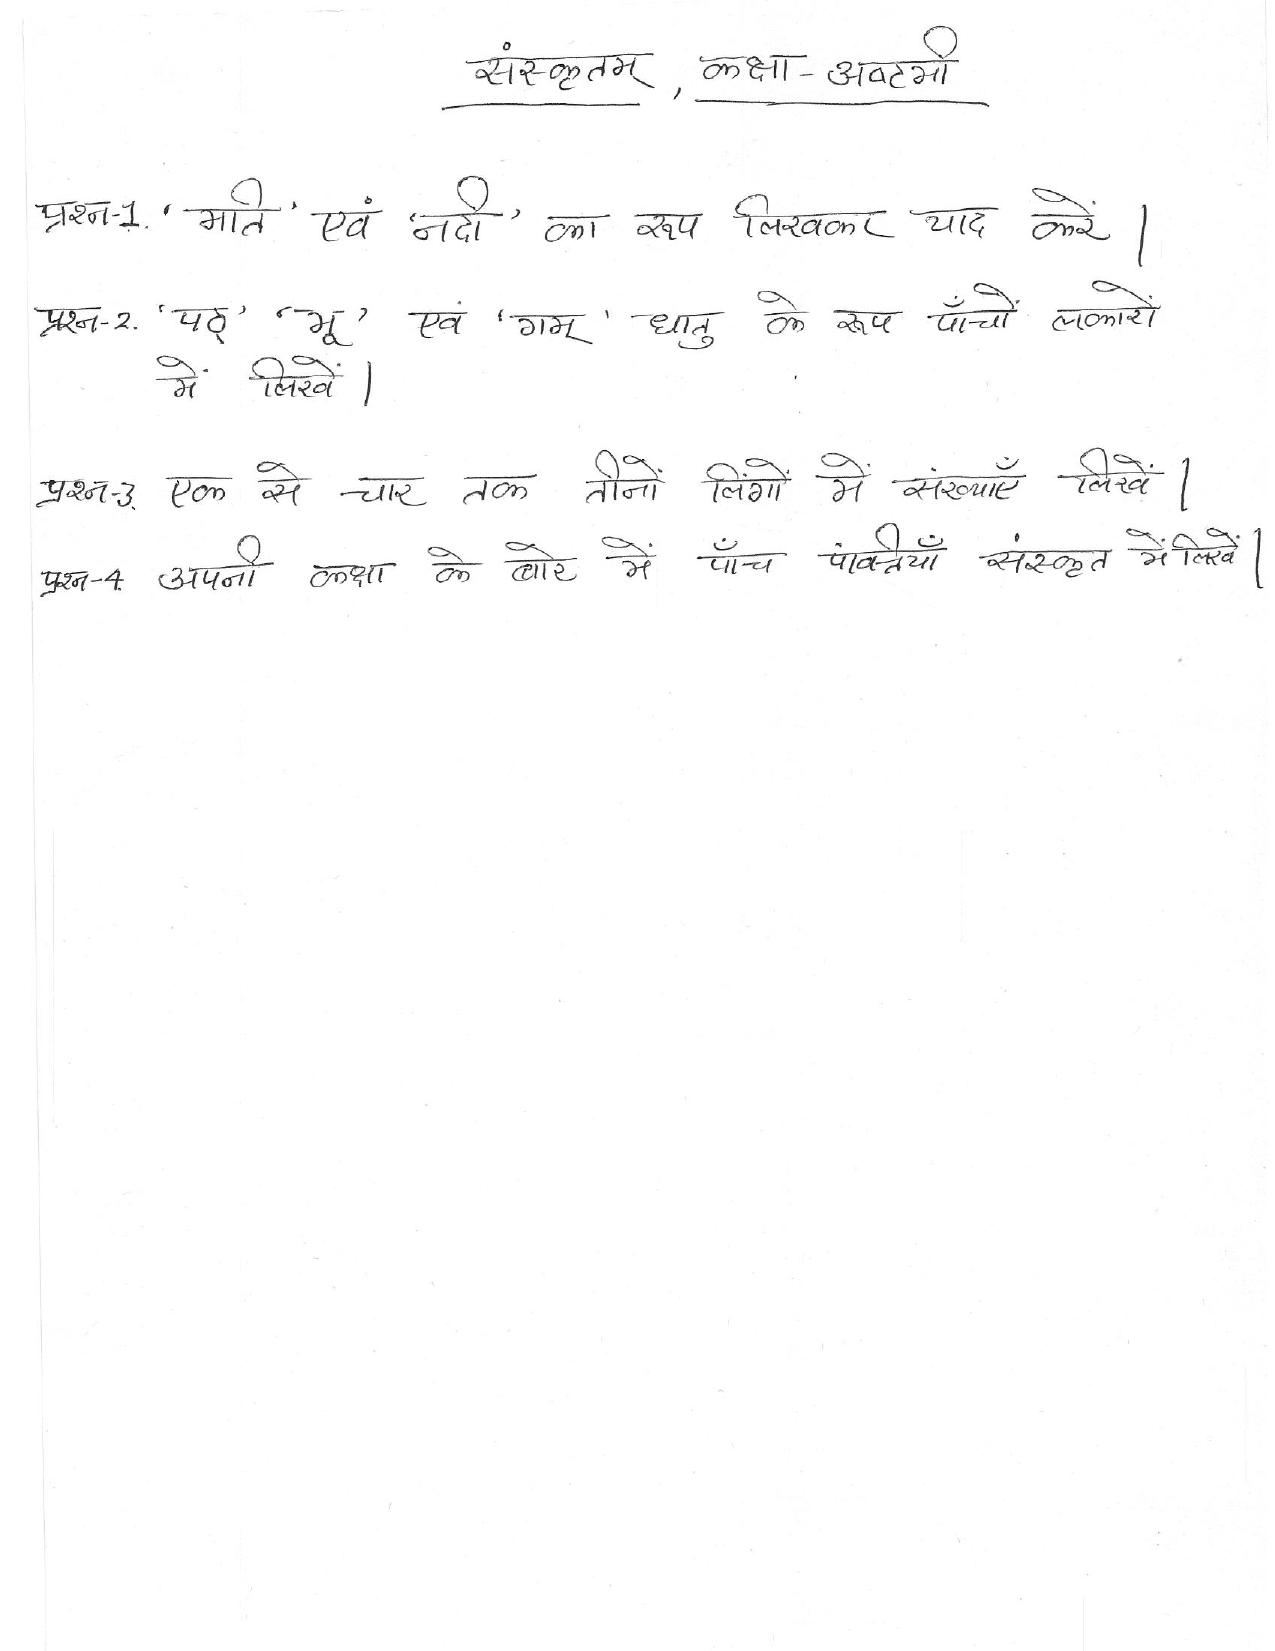 संस्कृतम् , कक्षा - अष्टमी
प्रश्न-1. 'मति' एवं 'नदी' का रूप लिखकर याद करें |
प्रश्न-2. 'पठ्' 'भू' एवं 'गम्' धातु के रूप पाँचों लकारों
में लिखें |
प्रश्न-3. एक से चार तक तीनों लिंगों में संख्याएँ लिखें |
प्रश्न-4. अपनी कक्षा के बारे में पाँच पंक्तियाँ संस्कृत में लिखें |